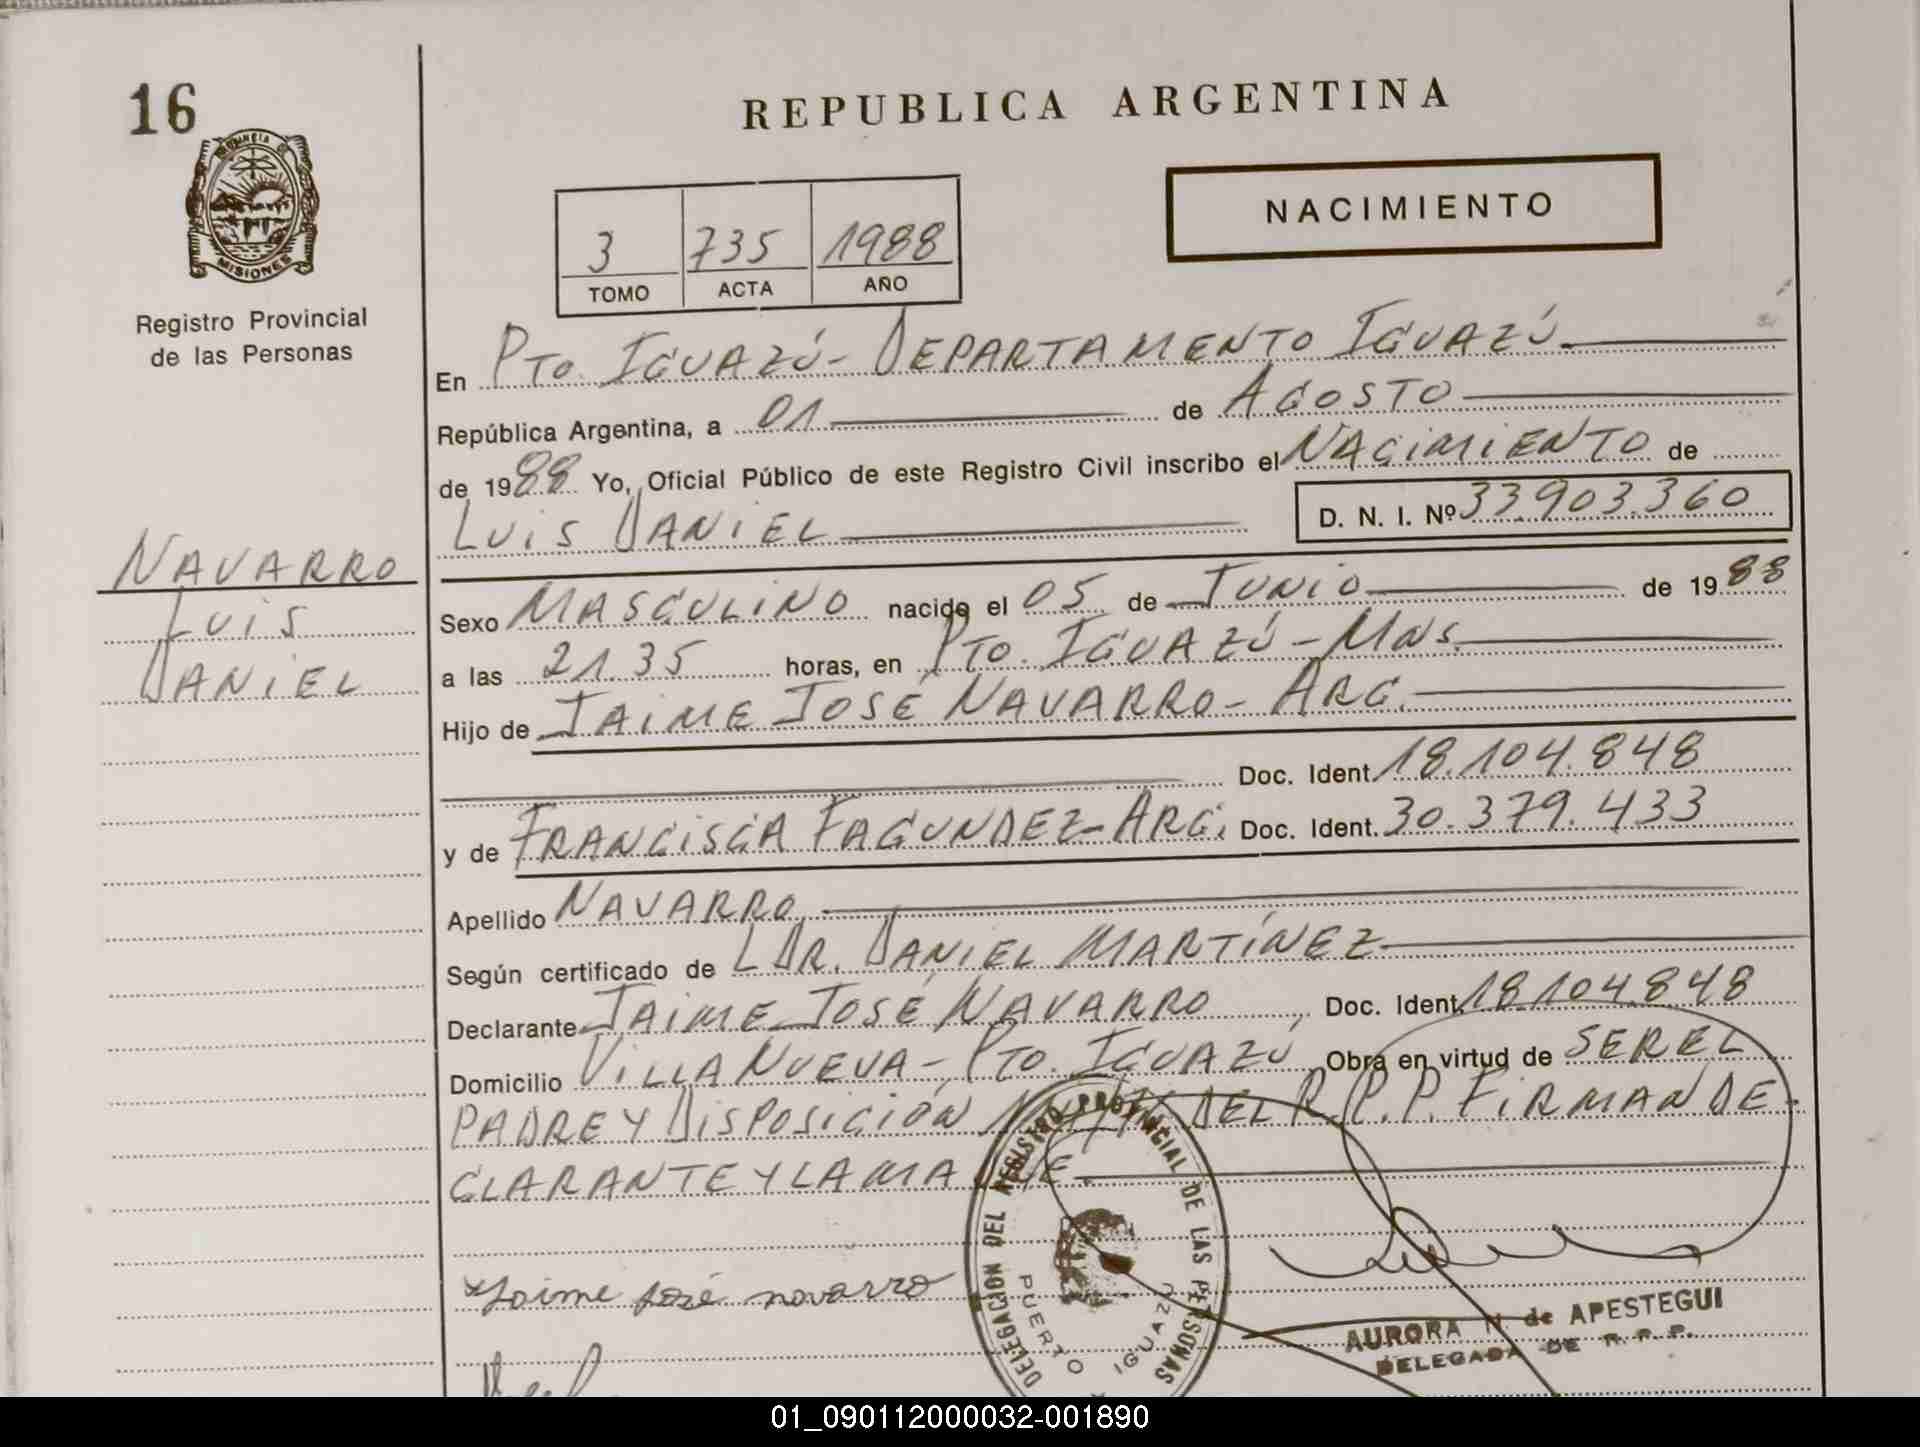 16
REPUBLICA ARGENTINA
PROVINCIA DE
MISIONES
Registro Provincial
de las Personas
NACIMIENTO
3 735 1988
TOMO ACTA AÑO
En PTO. IGUAZÚ - DEPARTAMENTO IGUAZÚ
República Argentina, a 01 de AGOSTO
de 1988 Yo, Oficial Público de este Registro Civil inscribo el NACIMIENTO de
LUIS DANIEL D. N. I. Nº 33.903.360
NAVARRO
LUIS
DANIEL
Sexo MASCULINO nacido el 05 de JUNIO de 1988
a las 21.35 horas, en PTO. IGUAZÚ - MNS.
Hijo de JAIME JOSE NAVARRO - ARG.
Doc. Ident. 18.104.848
y de FRANCISCA FAGUNDEZ - ARG. Doc. Ident. 30.379.433
Apellido NAVARRO
Según certificado de L DR. DANIEL MARTÍNEZ
Declarante JAIME JOSÉ NAVARRO, Doc. Ident. 18.104.848
Domicilio VILLA NUEVA - PTO. IGUAZÚ, Obra en virtud de SER EL
PADRE Y DISPOSICIÓN DEL R.P.P. FIRMAN DE-
CLARANTE Y LA MADRE
Jaime José navarro
DELEGACION DEL REGISTRO PROVINCIAL DE LAS PERSONAS
PUERTO IGUAZU
AURORA N. de APESTEGUI
DELEGADA DE R. P. P.
01_090112000032-001890